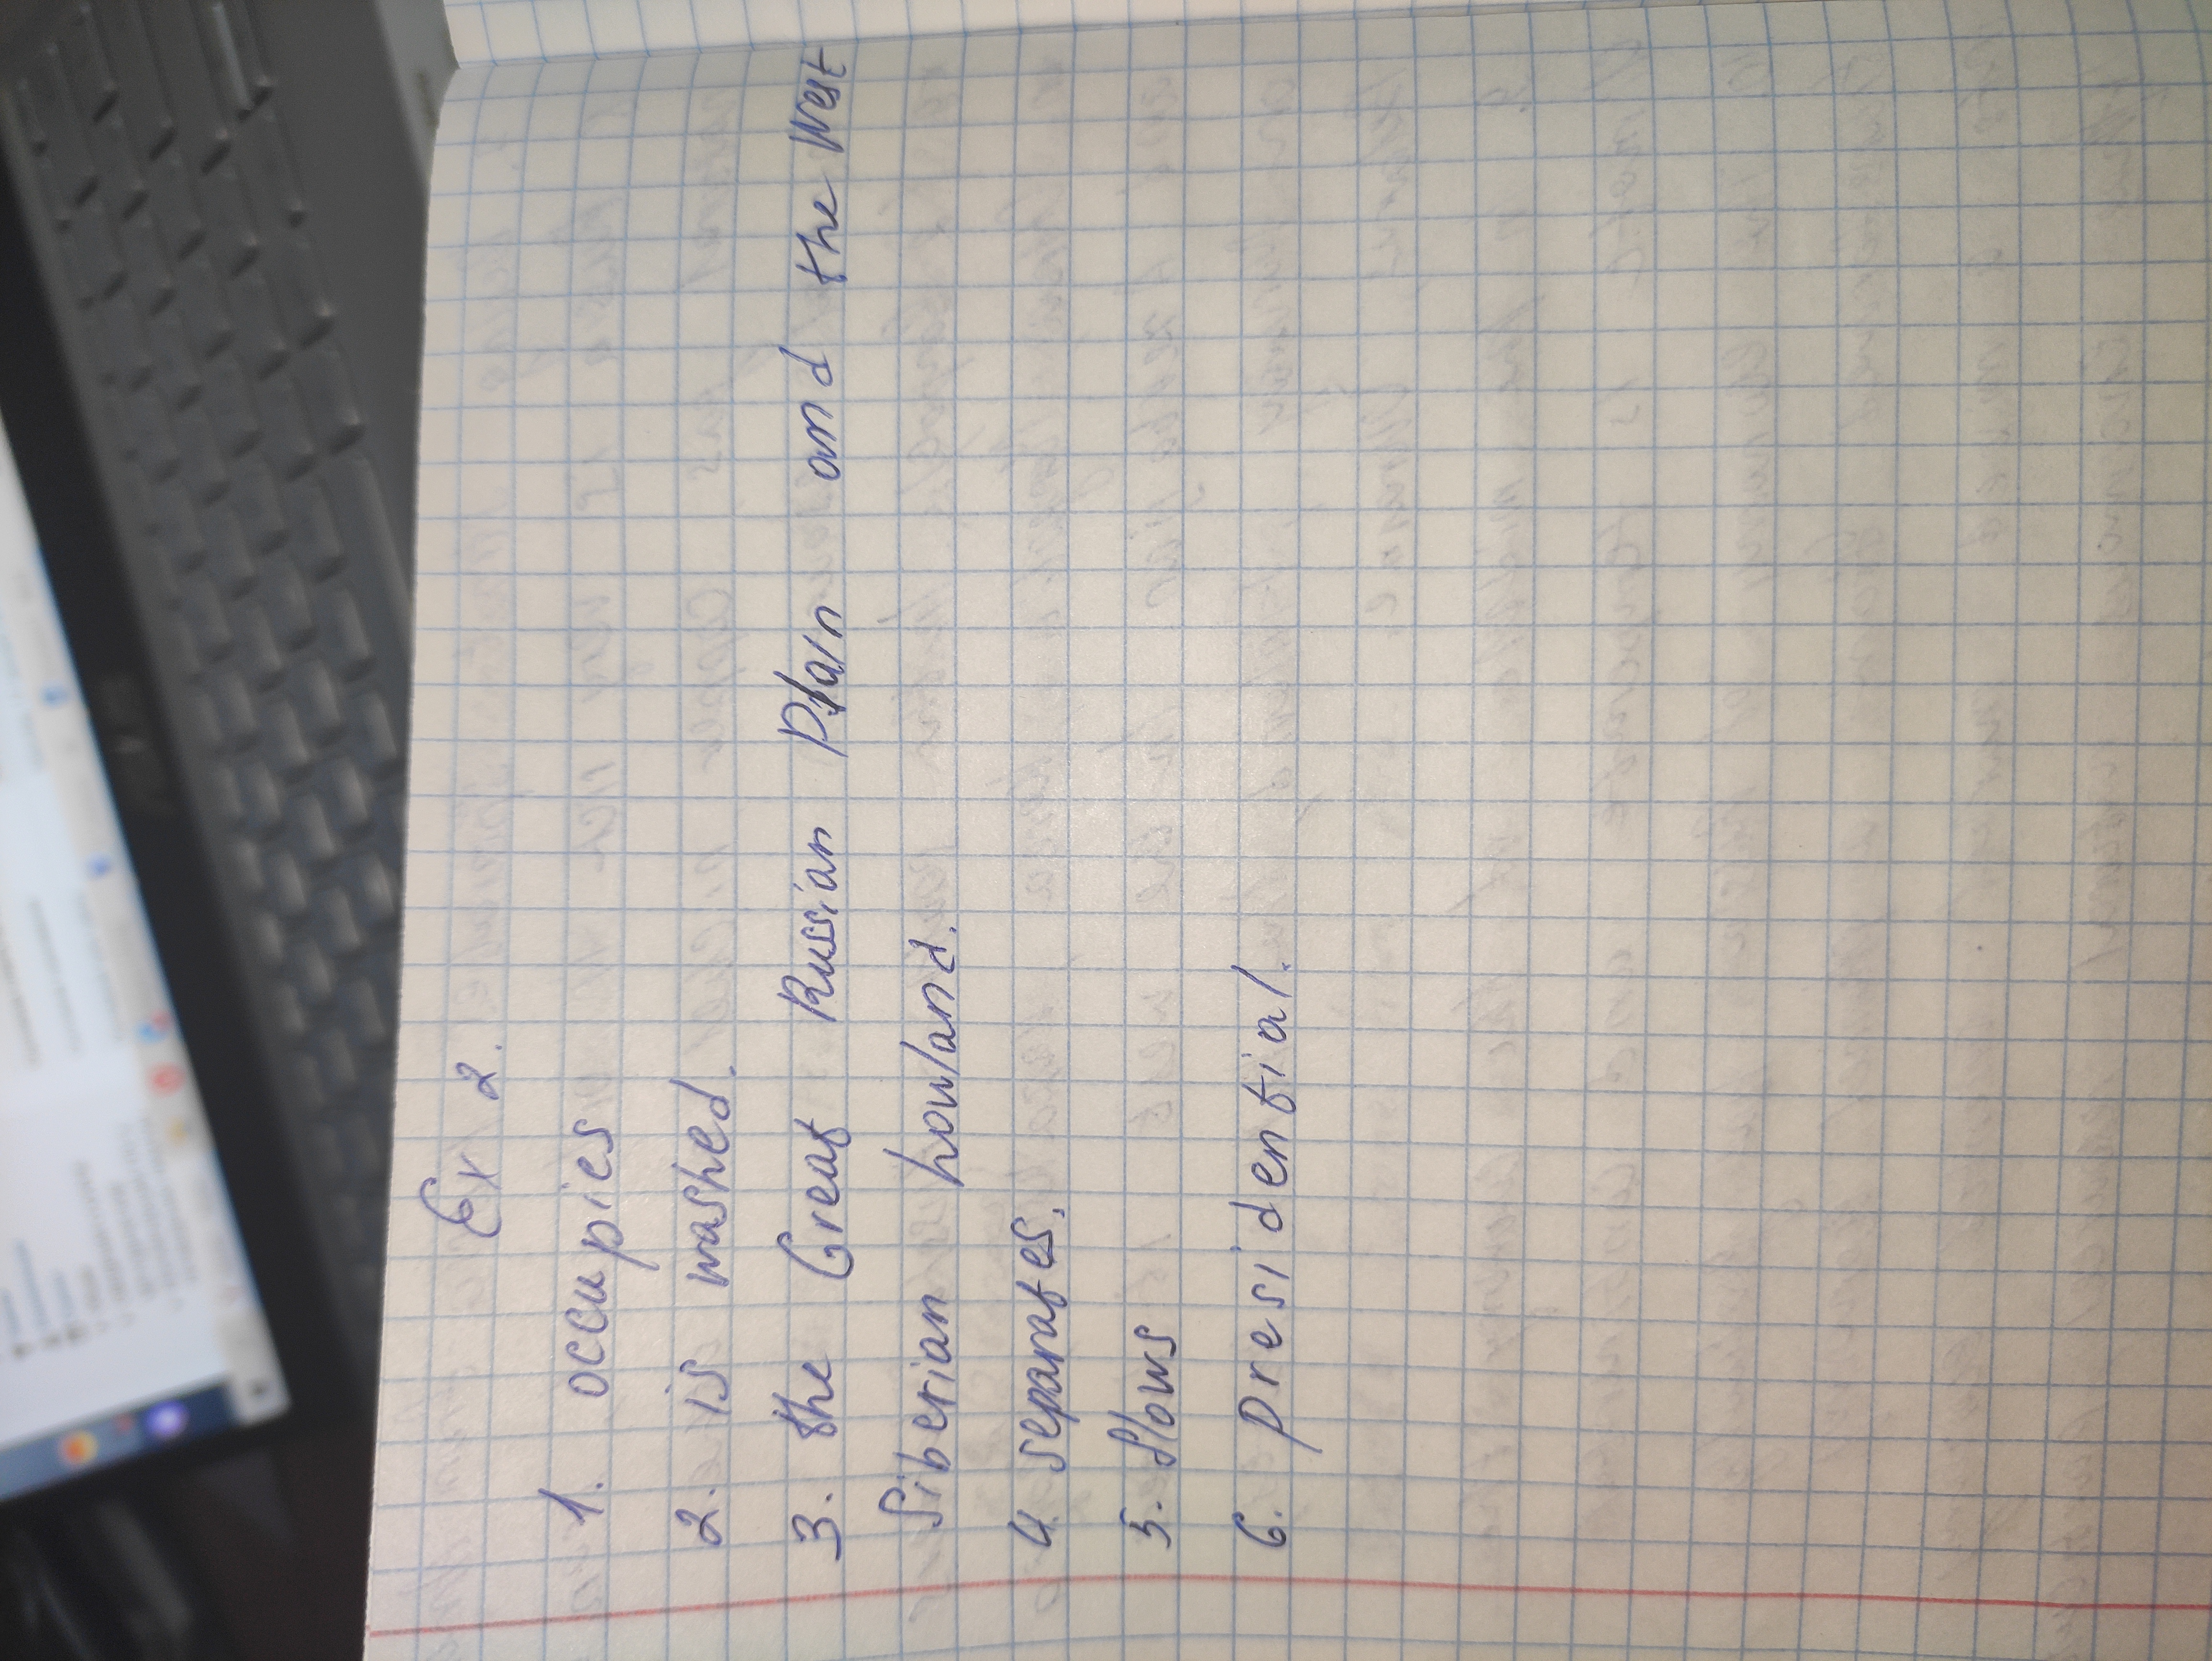 Ex 2.
1. occupies
2. is washed.
3. the Great Russian Plain and the West
Siberian howland.
4. separates.
5. flows
6. presidential.